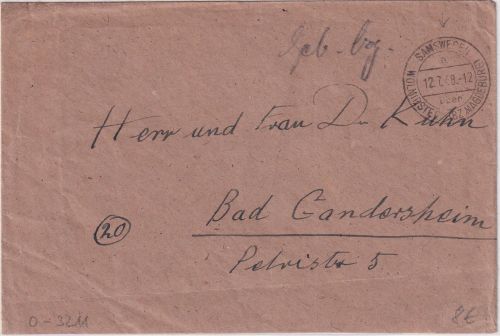 Geb. bez.
SAMSWEGEN
a
12.7.48.-12
über
WOLMIRSTEDT (BZ. MAGDEBURG)
Herr und Frau Dr Kuhn
20 Bad Gandersheim
Petristr 5
0-3211 8€